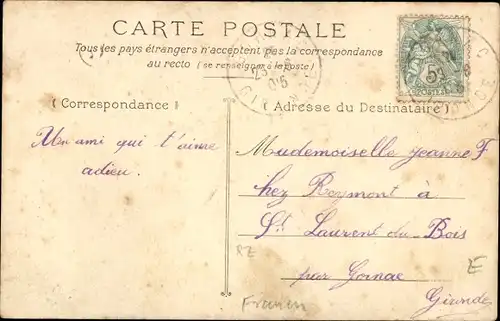 CARTE POSTALE
Tous les pays étrangers n'acceptent pas la correspondance
au recto (se renseigner à la poste)
(Correspondance)
Adresse du Destinataire)
Un ami qui t'aime
adieu.
Mademoiselle Jeanne F
chez Reymont à
St Laurent du Bois
par Gornac
Gironde
5
POSTES
RZ
E